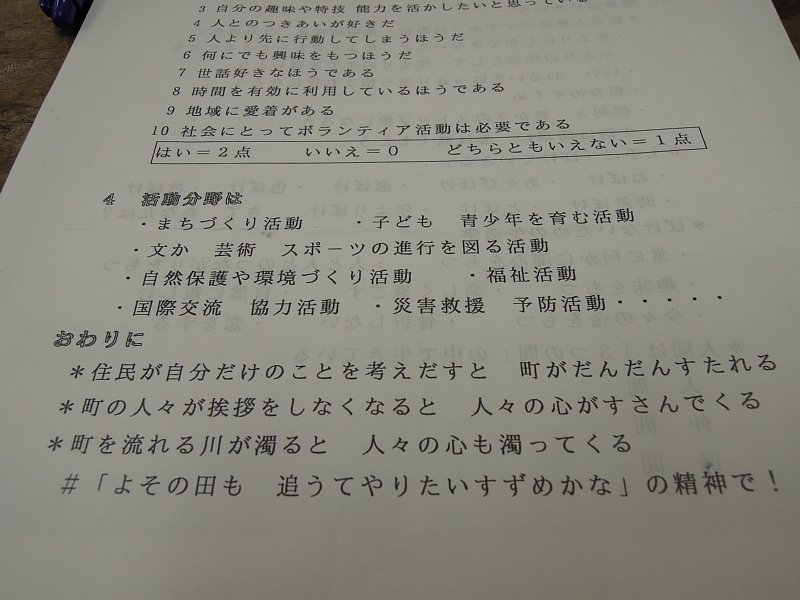 3 自分の趣味や特技 能力を活かしたいと思っている
4 人とのつきあいが好きだ
5 人より先に行動してしまうほうだ
6 何にでも興味をもつほうだ
7 世話好きなほうである
8 時間を有効に利用しているほうである
9 地域に愛着がある
10 社会にとってボランティア活動は必要である
はい＝2点 いいえ＝0 どちらともいえない＝1点
4 活動分野は
・まちづくり活動 ・子ども 青少年を育む活動
・文か 芸術 スポーツの進行を図る活動
・自然保護や環境づくり活動 ・福祉活動
・国際交流 協力活動 ・災害救援 予防活動・・・・・
おわりに
＊住民が自分だけのことを考えだすと 町がだんだんすたれる
＊町の人々が挨拶をしなくなると 人々の心がすさんでくる
＊町を流れる川が濁ると 人々の心も濁ってくる
＃「よその田も 追うてやりたいすずめかな」の精神で！